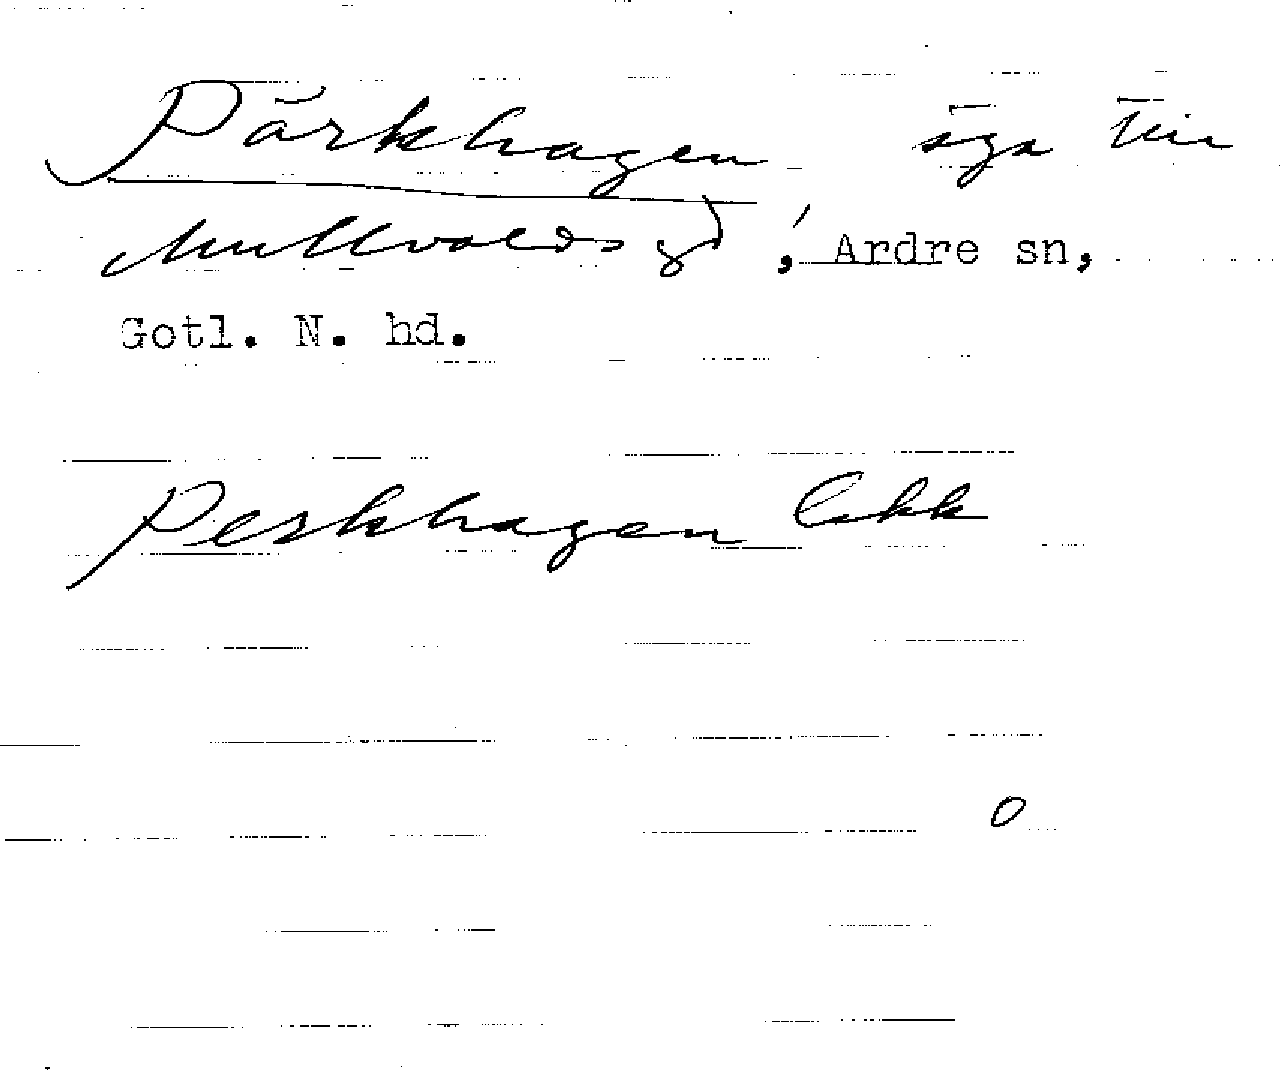 Pärkhagen äga till
Mullvalds gd, Ardre sn,
Gotl. N. hd.
Perkhagen Ckkk
0